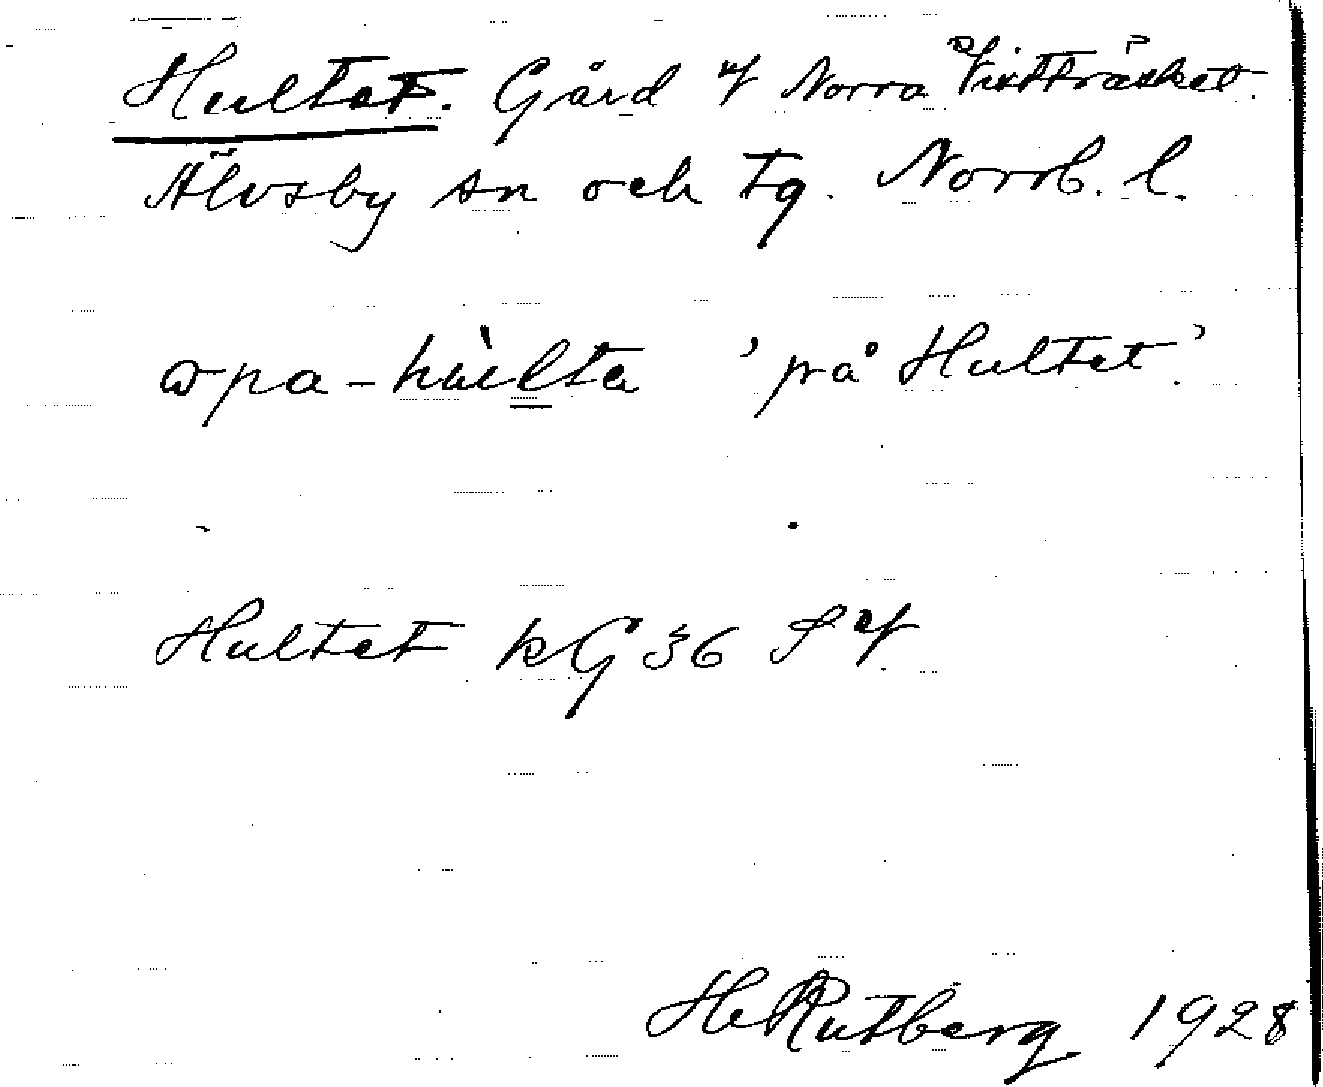 Hultet. Gård i Norra Vistträsket.
Älvsby sn och tg. Norrb. l.
apa-hùlta 'på Hultet'.
Hultet kG 36 S
He Rutberg 1928